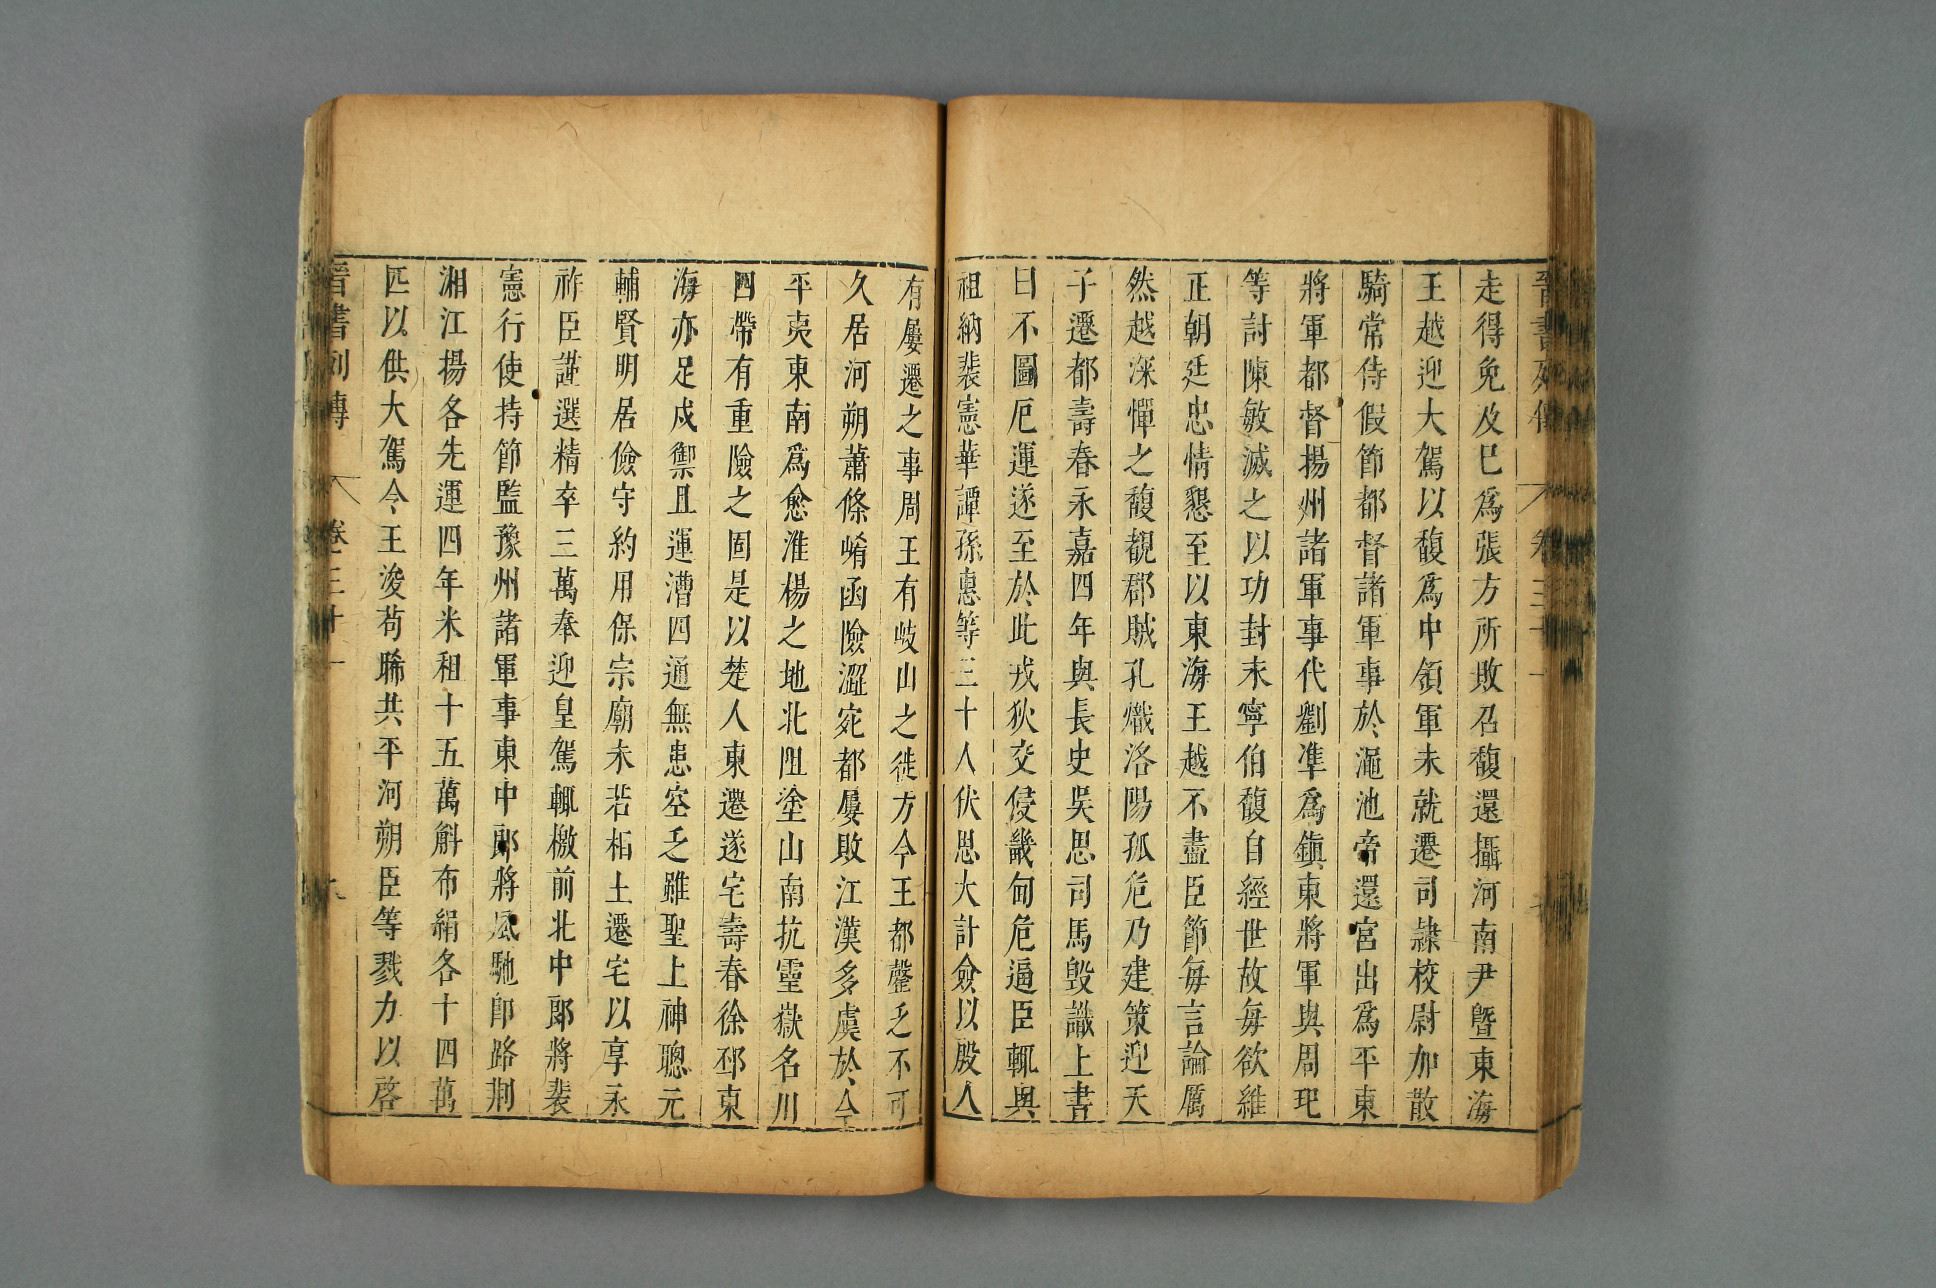 晉書列傳 卷三十一
走得免及巳爲張方所敗召馥還攝河南尹曁東海
王越迎大駕以馥爲中領軍未就遷司隸校尉加散
騎常侍假節都督諸軍事於澠池帝還宮出爲平東
將軍都督揚州諸軍事代劉凖爲鎮東將軍與周玘
等討陳敏滅之以功封末寧伯馥自經世故每欲維
正朝廷忠情懇至以東海王越不盡臣節每言論厲
然越深憚之馥覩郡賊孔熾洛陽孤危乃建策迎天
子遷都壽春永嘉四年與長史吳思司馬毁識上書
曰不圖厄運遂至於此戎狄交侵畿甸危逼臣輒與
祖納裴憲華譚孫惠等三十人伏思大計僉以殷人
有屢遷之事周王有岐山之徙方今王都罄乏不可
久居河朔蕭條崤函險澀宛都屢敗江漢多虞於今
平夷東南爲愈淮楊之地北阻塗山南抗靈嶽名川
四帶有重險之固是以楚人東遷遂宅壽春徐邳東
海亦足戍禦且運漕四通無患空乏雖聖上神聰元
輔賢明居儉守約用保宗廟未若柘土遷宅以享永
祚臣謹選精卒三萬奉迎皇駕輒檄前北中郎將裴
憲行使持節監豫州諸軍事東中郎將風馳卽路荆
湘江揚各先運四年米租十五萬斛布絹各十四萬
匹以供大駕今王浚苟晞共平河朔臣等戮力以啓
晉書列傳 卷三十一 八